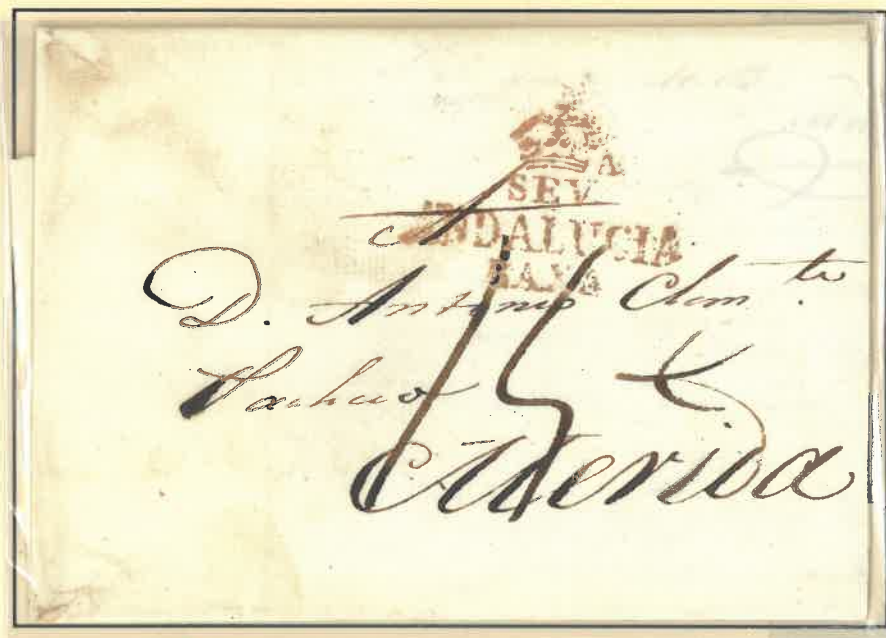 A
SEV A
ANDALUCIA
BAXA
D. Antonio Clem.te
Pacheco
15
Merida